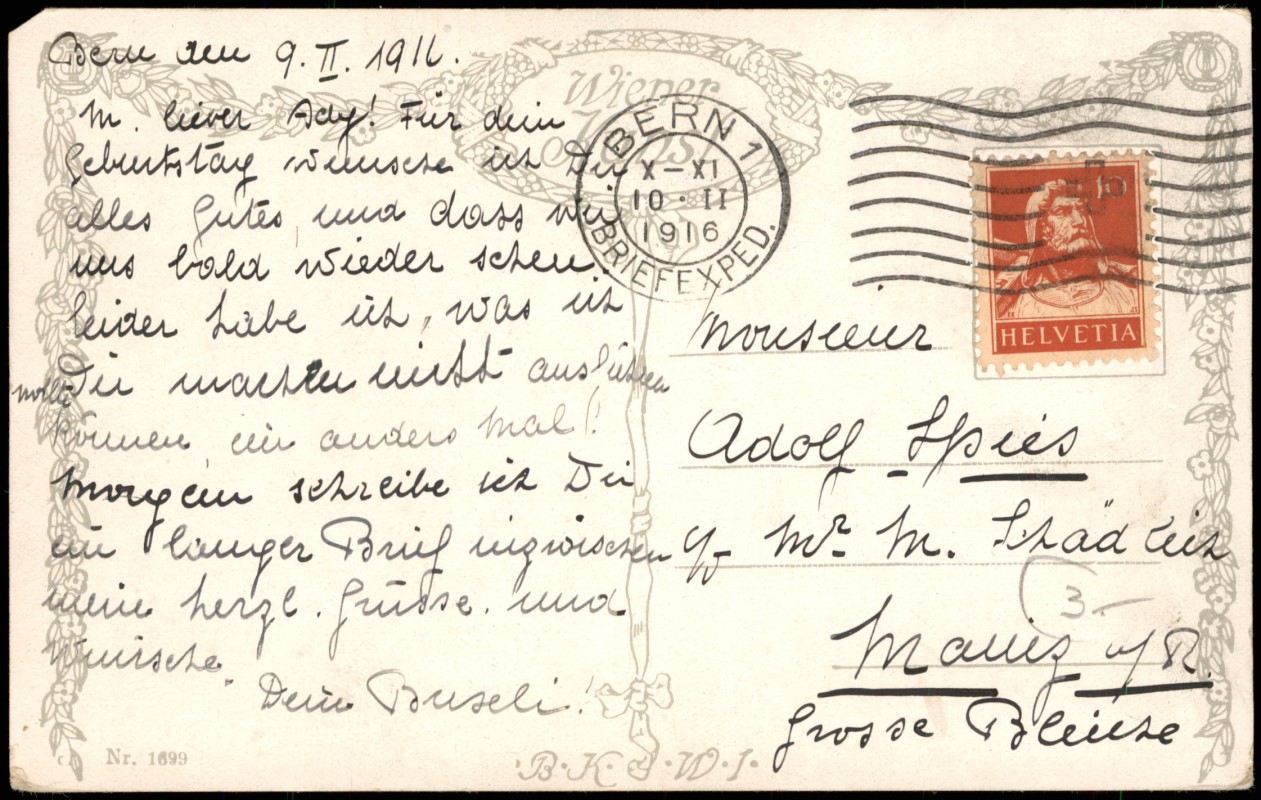 Bern den 9. II. 1916.
M. lieber Ady! Für dein
Geburtstag wünsche ich Dir
alles Gutes und dass wir
uns bald wieder sehen.
leider habe ich, was ich
Dir machen nicht ausführen
wollte
können, ein anders Mal!
Morgen schreibe ich Dir
ein langer Brief inzwischen
meine herzl. Grüsse. und
Wünsche.
Dein Buseli!
Wiener
BERN 1
X–XI
10·II
1916
BRIEFEXPED.
10
HELVETIA
Monsieur
Adolf Spies
c/o Mr. M. Schädlich
3.–
Mainz a/R.
Grosse Bleiche
Nr. 1699
B.K.W.I.